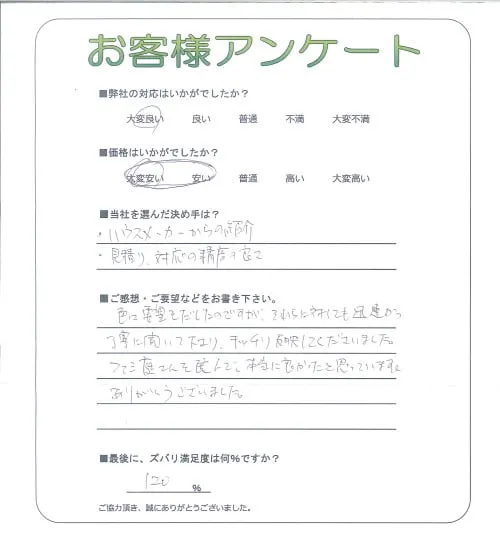 お客様アンケート
■弊社の対応はいかがでしたか?
大変良い 良い 普通 不満 大変不満
■価格はいかがでしたか?
大変安い 安い 普通 高い 大変高い
■当社を選んだ決め手は?
・ハウスメーカーからの紹介
・見積り、対応の精度
■ご感想・ご要望などをお書き下さい。
色々要望をだしたのですが、それらに対しても迅速かつ
丁寧に聞いて下さり、キッチリ反映してくださいました。
ファミ庭さんを選んで、本当に良かったと思っています。
ありがとうございました。
■最後に、ズバリ満足度は何%ですか?
120 %
ご協力頂き、誠にありがとうございました。